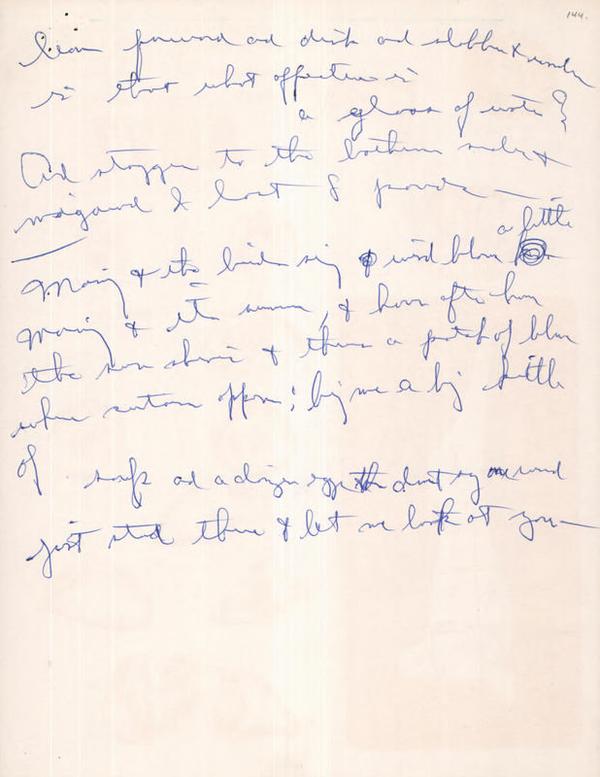 144.
lean forward and drink and slobber & wonder
is that what affection is
a glass of water?
And stagger to the bathroom and
I lost 8 pounds —
a little
Morning & the birds sing wind blows
Morning & it's summer, & hour after hour
the sun shines & there's a patch of blue
where curtain opens; bring me a big bottle
of and a dozen eggs then don't say one word
just stand there & let me look at you —